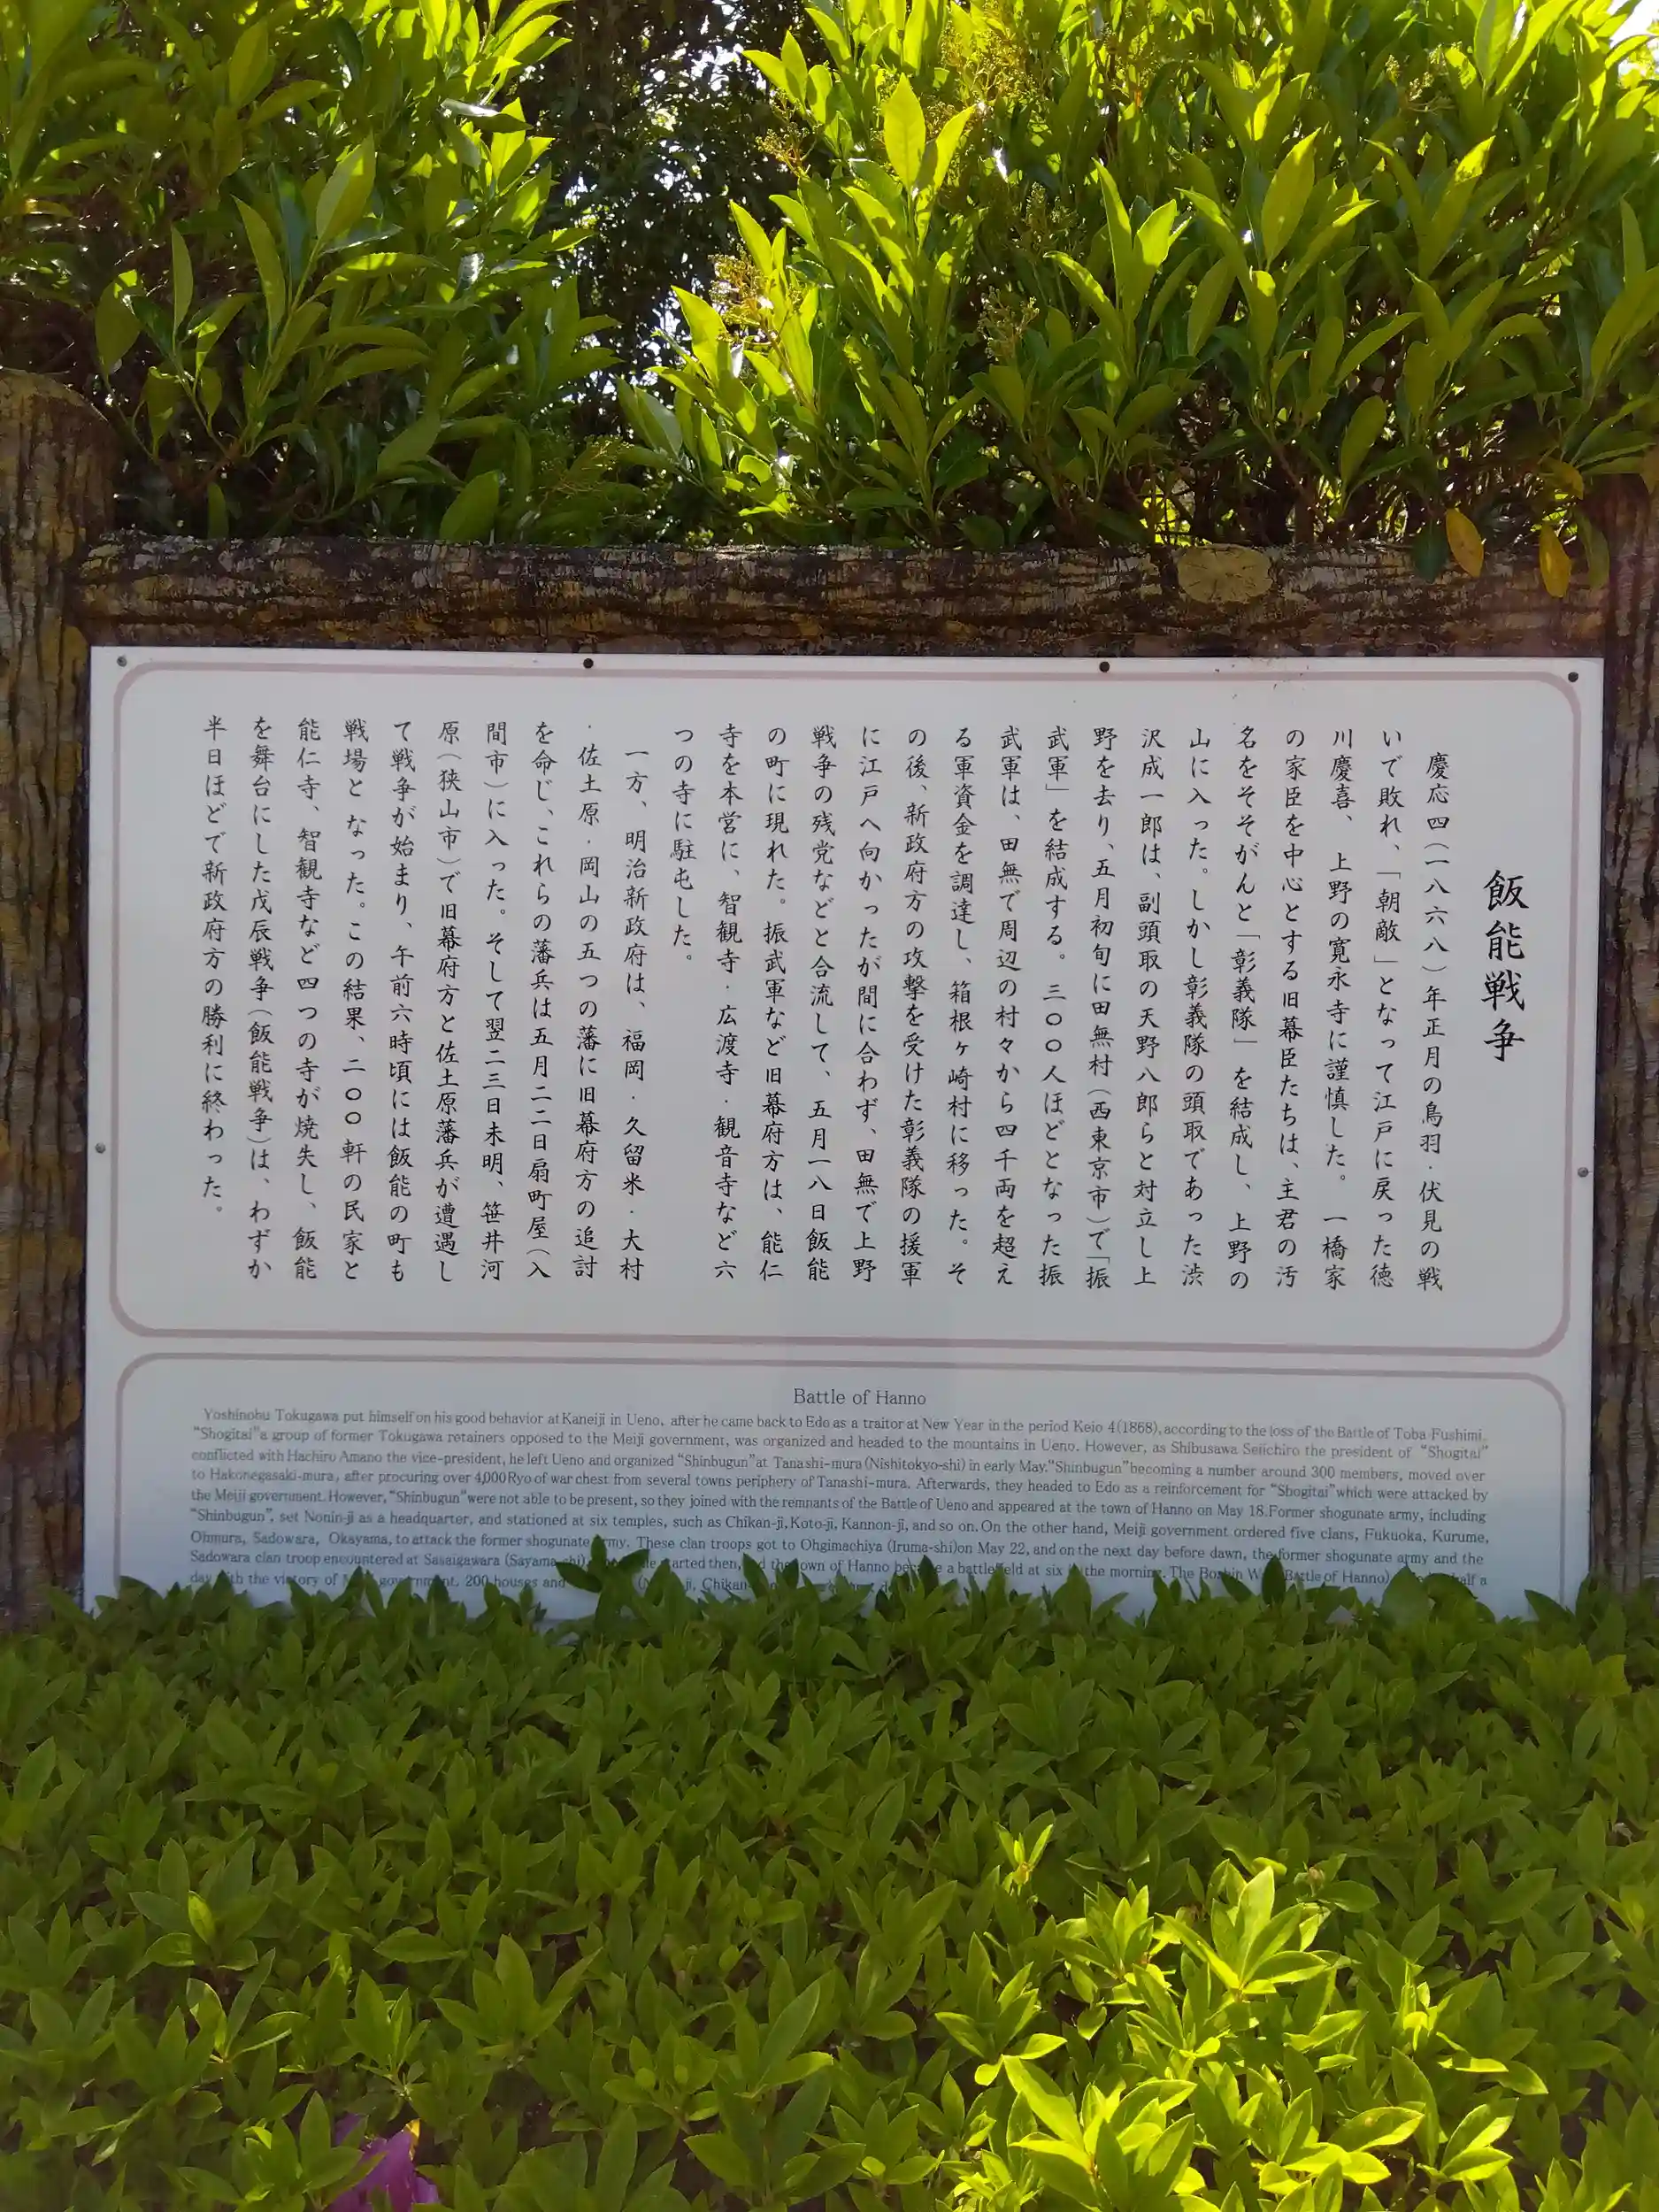 飯能戦争
慶応四(一八六八)年正月の鳥羽・伏見の戦
いで敗れ、「朝敵」となって江戸に戻った徳
川慶喜、上野の寛永寺に謹慎した。一橋家
の家臣を中心とする旧幕臣たちは、主君の汚
名をそそがんと「彰義隊」を結成し、上野の
山に入った。しかし彰義隊の頭取であった渋
沢成一郎は、副頭取の天野八郎らと対立し上
野を去り、五月初旬に田無村(西東京市)で「振
武軍」を結成する。三〇〇人ほどとなった振
武軍は、田無で周辺の村々から四千両を超え
る軍資金を調達し、箱根ヶ崎村に移った。そ
の後、新政府方の攻撃を受けた彰義隊の援軍
に江戸へ向かったが間に合わず、田無で上野
戦争の残党などと合流して、五月一八日飯能
の町に現れた。振武軍など旧幕府方は、能仁
寺を本営に、智観寺・広渡寺・観音寺など六
つの寺に駐屯した。
一方、明治新政府は、福岡・久留米・大村
・佐土原・岡山の五つの藩に旧幕府方の追討
を命じ、これらの藩兵は五月二二日扇町屋(入
間市)に入った。そして翌二三日未明、笹井河
原(狭山市)で旧幕府方と佐土原藩兵が遭遇し
て戦争が始まり、午前六時頃には飯能の町も
戦場となった。この結果、二〇〇軒の民家と
能仁寺、智観寺など四つの寺が焼失し、飯能
を舞台にした戊辰戦争(飯能戦争)は、わずか
半日ほどで新政府方の勝利に終わった。
Battle of Hanno
Yoshinobu Tokugawa put himself on his good behavior at Kaneiji in Ueno, after he came back to Edo as a traitor at New Year in the period Keio 4(1868), according to the loss of the Battle of Toba-Fushimi.
"Shogitai" a group of former Tokugawa retainers opposed to the Meiji government, was organized and headed to the mountains in Ueno. However, as Shibusawa Seiichiro the president of "Shogitai"
conflicted with Hachiro Amano the vice-president, he left Ueno and organized "Shinbugun" at Tanashi-mura (Nishitokyo-shi) in early May. "Shinbugun" becoming a number around 300 members, moved over
to Hakonegasaki-mura, after procuring over 4,000Ryo of war chest from several towns periphery of Tanashi-mura. Afterwards, they headed to Edo as a reinforcement for "Shogitai" which were attacked by
the Meiji government. However, "Shinbugun" were not able to be present, so they joined with the remnants of the Battle of Ueno and appeared at the town of Hanno on May 18.Former shogunate army, including
"Shinbugun", set Nonin-ji as a headquarter, and stationed at six temples, such as Chikan-ji, Koto-ji, Kannon-ji, and so on. On the other hand, Meiji government ordered five clans, Fukuoka, Kurume,
Ohmura, Sadowara, Okayama, to attack the former shogunate army. These clan troops got to Ohgimachiya (Iruma-shi)on May 22, and on the next day before dawn, the former shogunate army and the
Sadowara clan troop encountered at Sasaigawara (Sayama-shi) started then, the town of Hanno became a battlefield at six the morning. The Boshin Battle of Hanno) half a
day with the victory of government. 200 houses and ji, Chikan-